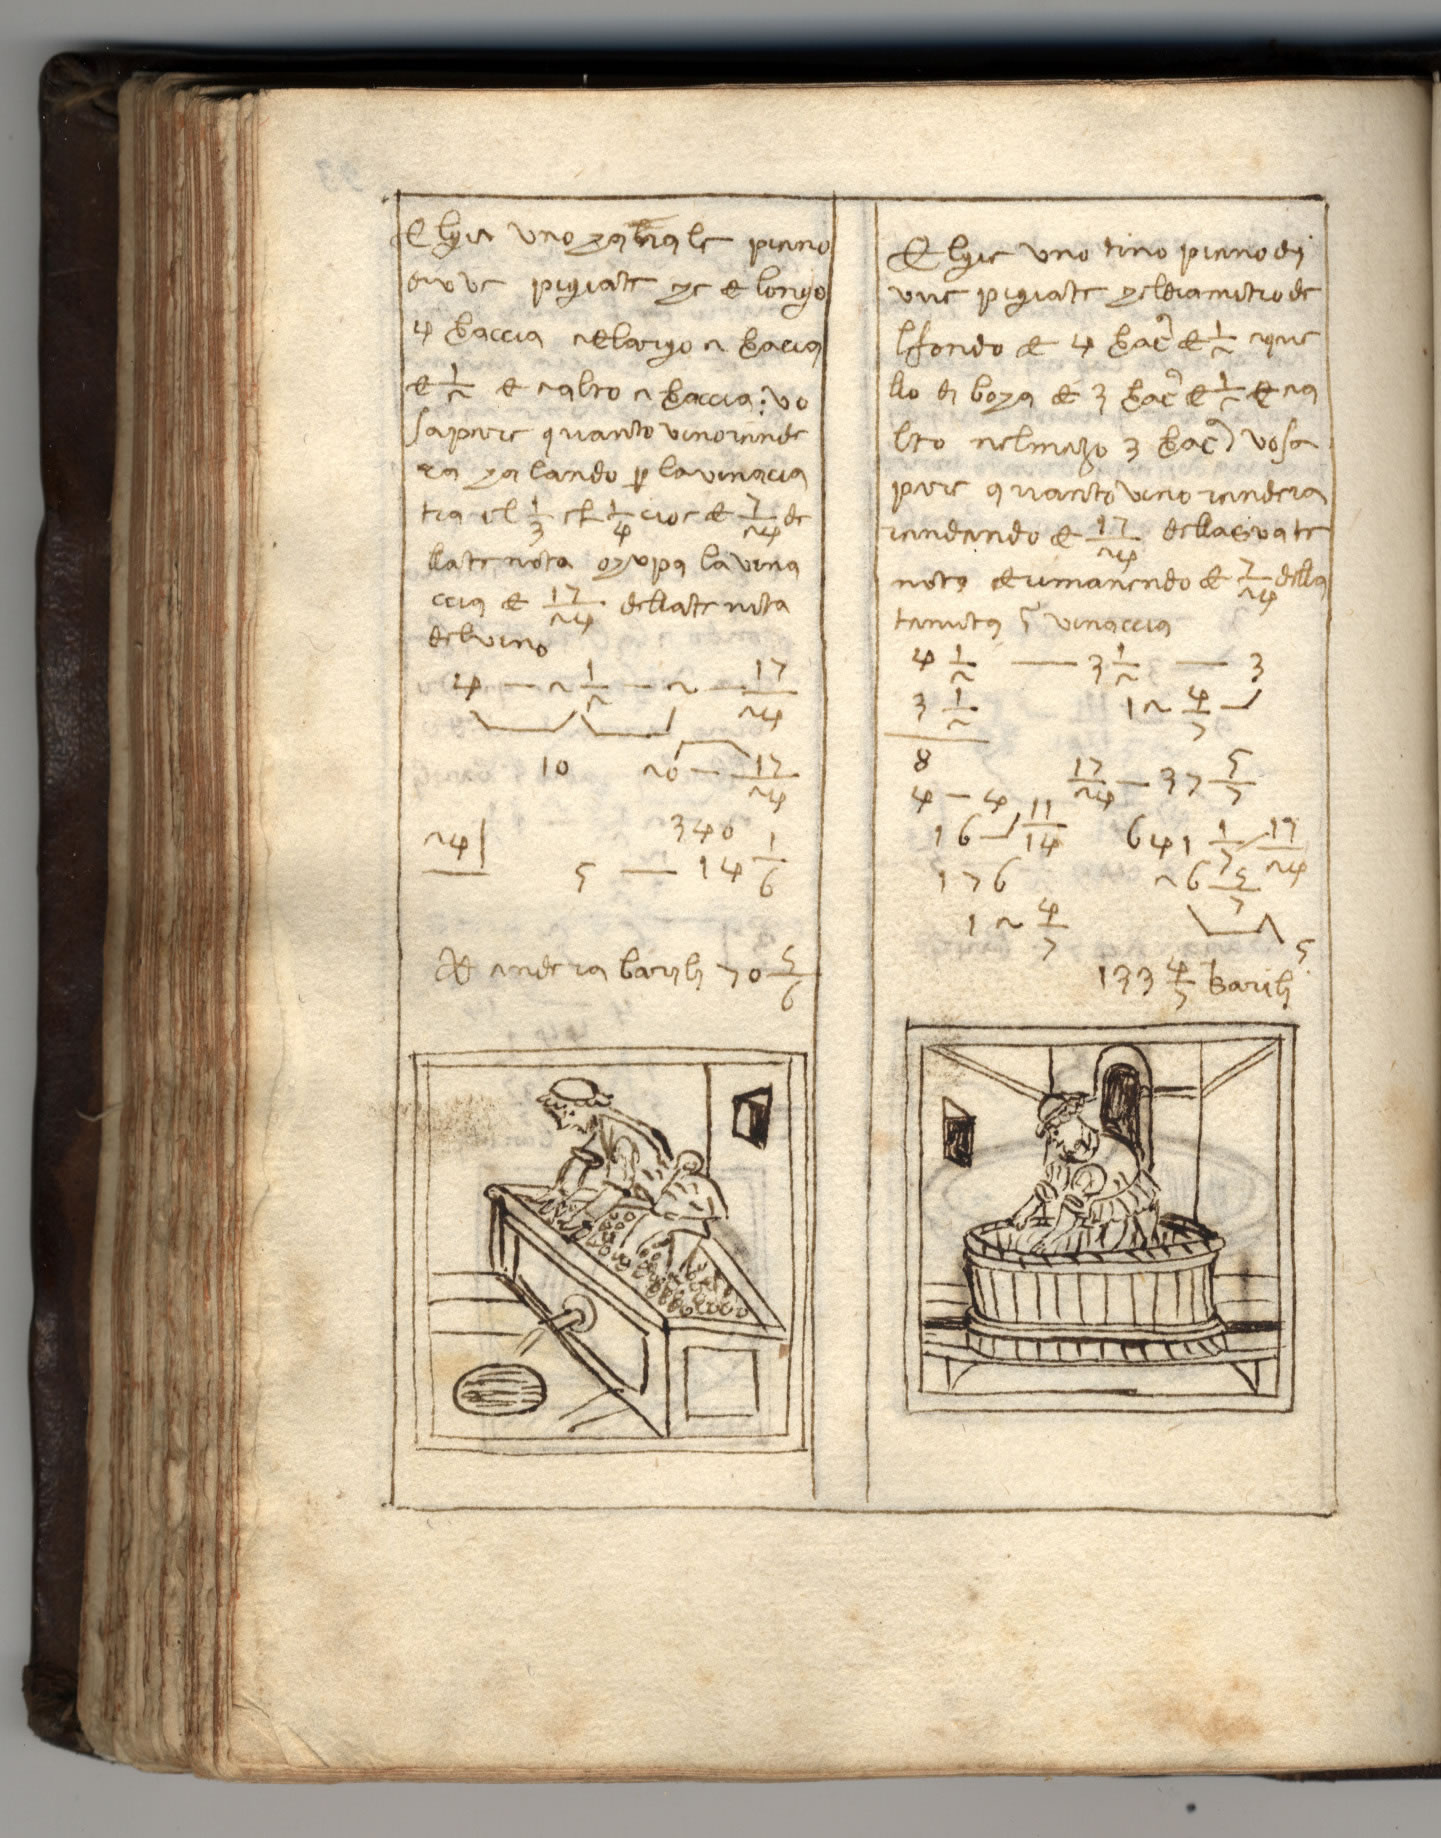 Elgie uno piano
duve pigiate ye e longo
4 baccia largo 2 bacia
e 1/2 e alto 2 baccia: vo
sapere quanto vino rende
ra lando p la vinacia
tra el 1/3 el 1/4 cioe e 7/24 de
lla tenota la vina
ccia e 17/24 della tenuta
del vino
4 — 2 1/2 — 2 — 17/24
10 20 — 17/24
340
24
5 — 14 1/6
rendera barili 70 5/6
Elgie uno tino pieno di
uve pigiate diamitro de
l fondo e 4 bac e 1/2 que
llo di e 3 bac e 1/2 e
lto nel mezo 3 bac vo sa
pere quanto vino rendera
rendendo e 17/24 della
note e rimanendo e 7/24 della
tenuta vinaccia
4 1/2 — 3 1/2 — 3
3 1/2 12 4/7
8
17/24 — 37 5/7
4 — 4
16 11/14 641 1/7 17/24
176 26 5/7
12 4/7
5
133 4/7 barili